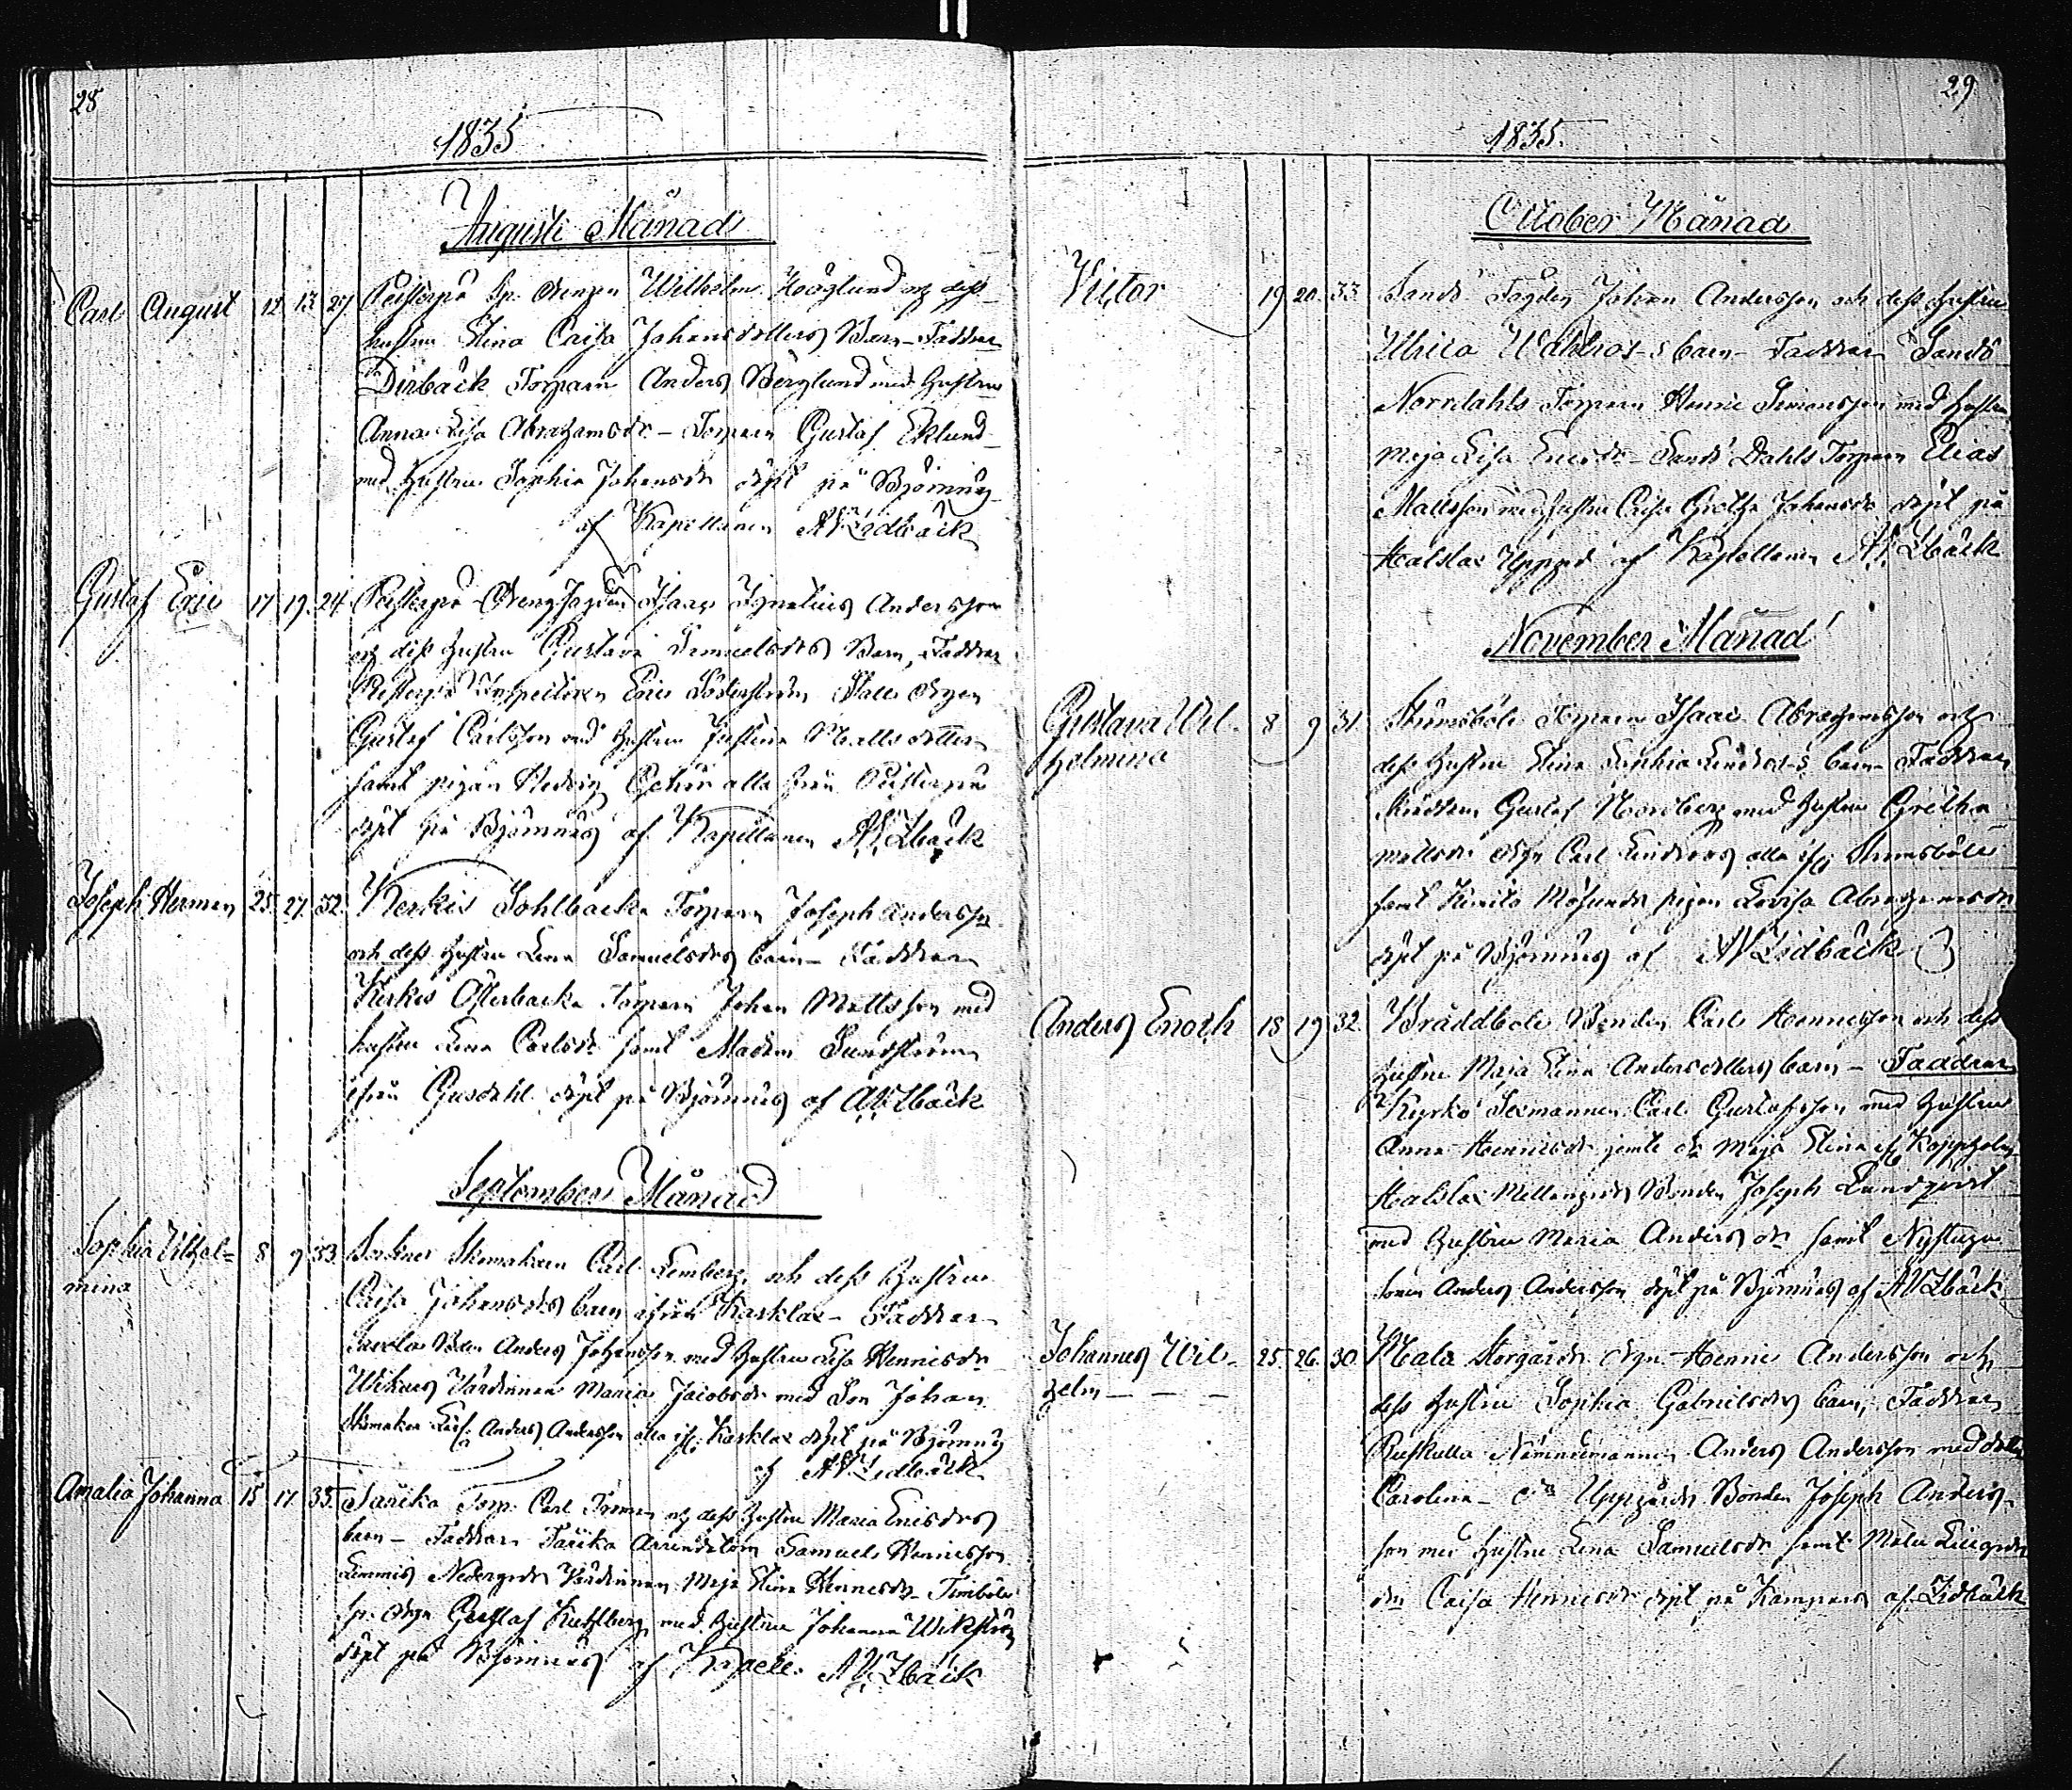 28
1835
Augusti Månad
Carl August 12. 13. 27 Wilhelm Höglund och dess
hustru Stina Caisa Johansdotters Barn - Faddrar
Dirbäck Torparn Anders Berglund med hustru
Anna Lisa Abrahamsdr - Torparn Gustaf Eklund
med hustru Sophia Johansdr döpt på Björnnäs
af Kapellanen A V Lidbäck
Gustaf Eric 17. 19. 24. Isaac Ignatius Andersson
och dess hustru Gustava Samuelsdrs Barn, Faddrar
Inspectoren Eric Söderström
Gustaf Carlsson med hustru Justina Mattsdotter
samt pigan Hedvig alla från
döpt på Björnnäs af Kapellanen A V Lbäck
Joseph Herman 25. 27. 32. Kerkis Sohlbacka Torparn Joseph Andersson
och dess hustru Lena Samuelsdrs barn - Faddrar
Kerkis Österbacka Torparn Johan Mattsson med
hustru Lena Carlsdr samt Madam Sundström
ifrån Gusdahl döpt på Björnnäs af A V Lbäck
September Månad
Sophia Vilhel= 8 9 33. Sockne Skomakarn Carl Lemberg och dess hustru
mina Caisa Johansdrs barn ifrån Karklax - Faddrar
Anders Johansson med hustru Lisa Henricsdr
Wiknäs Värdinnan Maria Jacobsdr med Son Johan
Skomakar Anders Andersson alla ifr. Karklax döpt på Björnnäs
af A V Lidbäck
Amalia Johanna 15 17. 35. Sarika Torp. Carl och dess hustru Maria Ericsdrs
barn - Faddrar Sarika Arrendatorn Samuel Henricsson
Nedergårds Värdinnan Maja Stina Henricsdr - Timböle
Gustaf med hustru Johanna
döpt på Björnnäs af Kapell. A V Lbäck
29
1835.
October Månad
Victor 19 20. 33. Sandö Johan Andersson och dess hustru
Ulrica Wahlroos-s barn - Faddrar Sandö
Norrdahls Torparn Henric Simonsson med hustru
Maja Lisa Ericsdr - Sandö Dahls Torparn Elias
Mattsson med hustru Caisa Gretha Johansdr döpt på
Kalslax Uppgård af Kapellanen A V Lbäck
November Månad
Gustava Vil- 8 9 31. Strömsböle Torparn Isaac Abrahamsson och
helmina dess hustru Stina Sophia barn Faddrar
Gustaf Nordberg med hustru Gretha
Mattsdr Carl Lindroos alla ifr. Strömsböle
samt Kimito pigan Lovisa Abrahamsdr
döpt på Björnnäs af A V Lidbäck
Anders Enoch 18 19 32. Bräddbole Bonden Carl Henricsson och dess
hustru Maja Stina Andersdotters barn - Faddrar
Kyrko Sexmannen Carl Gustafsson med hustru
Anna Henricsdr jemte dr Maja Stina ifr.
Kalslax Mellangårds Bonden Joseph Lundqvist
med hustru Maria Anders dr samt
Anders Andersson döpt på Björnnäs af A V Lbäck
Johannes Vil- 25. 26. 30. Mala Storgårds Henric Andersson och
helm - - - dess hustru Sophia Gabrielsdrs barn, Faddrar
Nämndemannen Anders Andersson med
Carolina - Uppgårds Bonden Joseph Anders-
son med hustru Lena Samuelsdr samt Mala
Caisa Henricsdr döpt på af Lidbäck